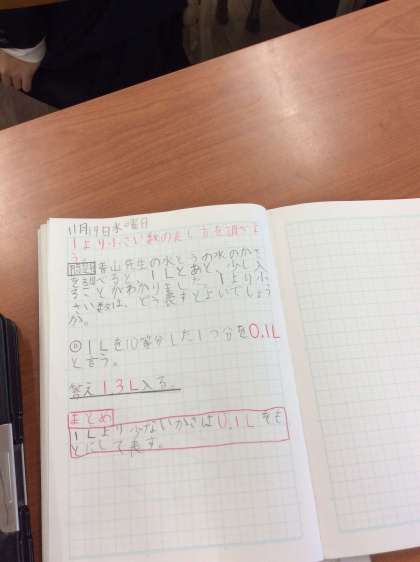 11月19日水曜日
1より小さい数の表し方を調べよ
う。
問題 青山先生の水とうの水のかさ
を調べると、1Lとあと、少し入
ることがわかりました。1より小
さい数は、どう表すとよいでしょう
か。
◎1Lを10等分した1つ分を0.1L
と言う。
答え 1.3L入る。
まとめ
1Lより少ないかさは0.1Lをも
とにして表す。